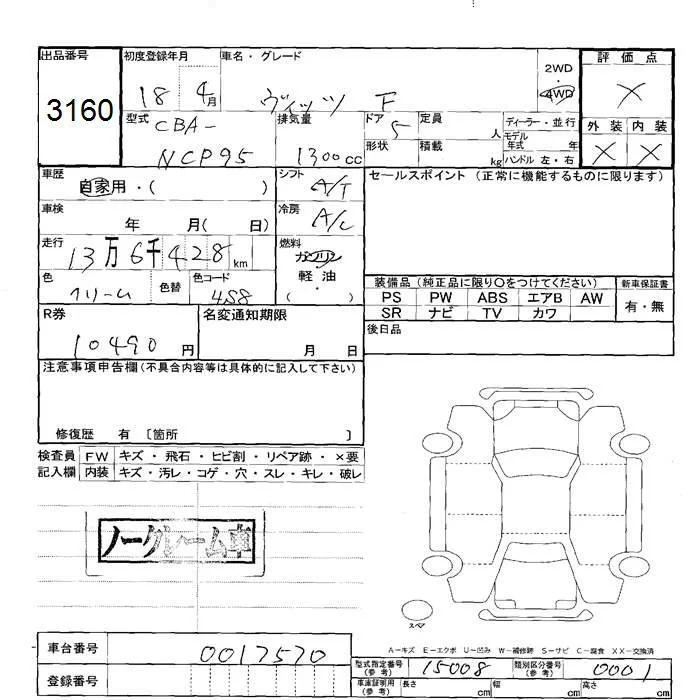 出品番号
3160
初度登録年月
18 4月
車名・グレード
ヴィッツ F
2WD
4WD
評価点
X
外装 内装
X X
型式
CBA-
NCP95
排気量
1300cc
ドア
5
形状
定員
人
積載
kg
ディーラー・並行
モデル
年式 年
ハンドル 左・右
車歴
自家用・( )
シフト
A/T
セールスポイント (正常に機能するものに限ります)
車検
年 月( 日)
冷房
A/C
走行
13万6千428km
燃料
ガソリン
軽・油
( )
色
クリーム
色替
色コード
4S8
装備品 (純正品に限り○をつけてください)
PS PW ABS エアB AW
SR ナビ TV カワ
新車保証書
有・無
R券
10490円
名変通知期限
月 日
後日品
注意事項申告欄(不具合内容等は具体的に記入して下さい)
修復歴 有 〔箇所 〕
検査員 FW キズ・飛石・ヒビ割・リペア跡・×要
記入欄 内装 キズ・汚レ・コゲ・穴・スレ・キレ・破レ
ノークレーム車
スペア
A-キズ E-エクボ U-凹み W-補修跡 S-サビ C-腐食 XX-交換済
車台番号
0017570
登録番号
型式指定番号
(参考)
15008
類別区分番号
(参考)
0001
車庫証明用
(参考)
長さ cm
幅 cm
高さ cm